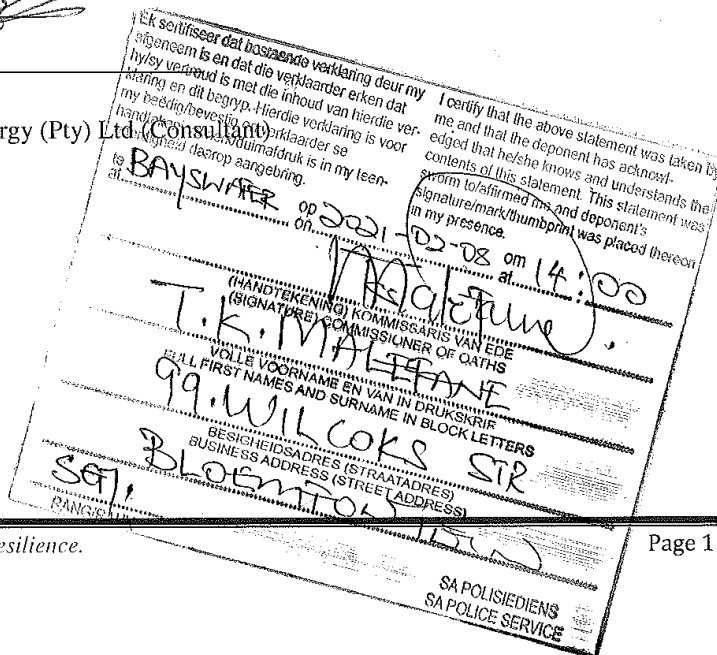 Ek sertifiseer dat bostaande verklaring deur my
afgeneem is en dat die verklaarder erken dat
hy/sy vertroud is met die inhoud van hierdie ver-
klaring en dit begryp. Hierdie verklaring is voor
my beëdig/bevestig en verklaarder se
handtekening/merk/duimafdruk is in my teen-
woordigheid daarop aangebring.
I certify that the above statement was taken by
me and that the deponent has acknowl-
edged that he/she knows and understands the
contents of this statement. This statement was
sworn to/affirmed me and deponent's
signature/mark/thumbprint was placed thereon
in my presence.
rgy (Pty) Ltd (Consultant)
te
at BAYSWATER op
on 2021-02-08 om
at 14:00
(HANDTEKENING) KOMMISSARIS VAN EDE
(SIGNATURE) COMMISSIONER OF OATHS
T.K. MALEFANE
VOLLE VOORNAME EN VAN IN DRUKSKRIF
FULL FIRST NAMES AND SURNAME IN BLOCK LETTERS
99. WILCOKS STR
BESIGHEIDSADRES (STRAATADRES)
BUSINESS ADDRESS (STREET ADDRESS)
SGT.
RANG/RANK
esilience.
Page 1
SA POLISIEDIENS
SA POLICE SERVICE